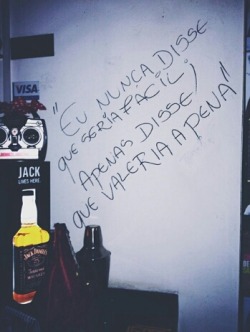 "EU NUNCA DISSE
QUE SERIA FÁCIL;
APENAS DISSE,
QUE VALERIA A PENA"
VISA
JACK
LIVES HERE
JACK DANIEL'S